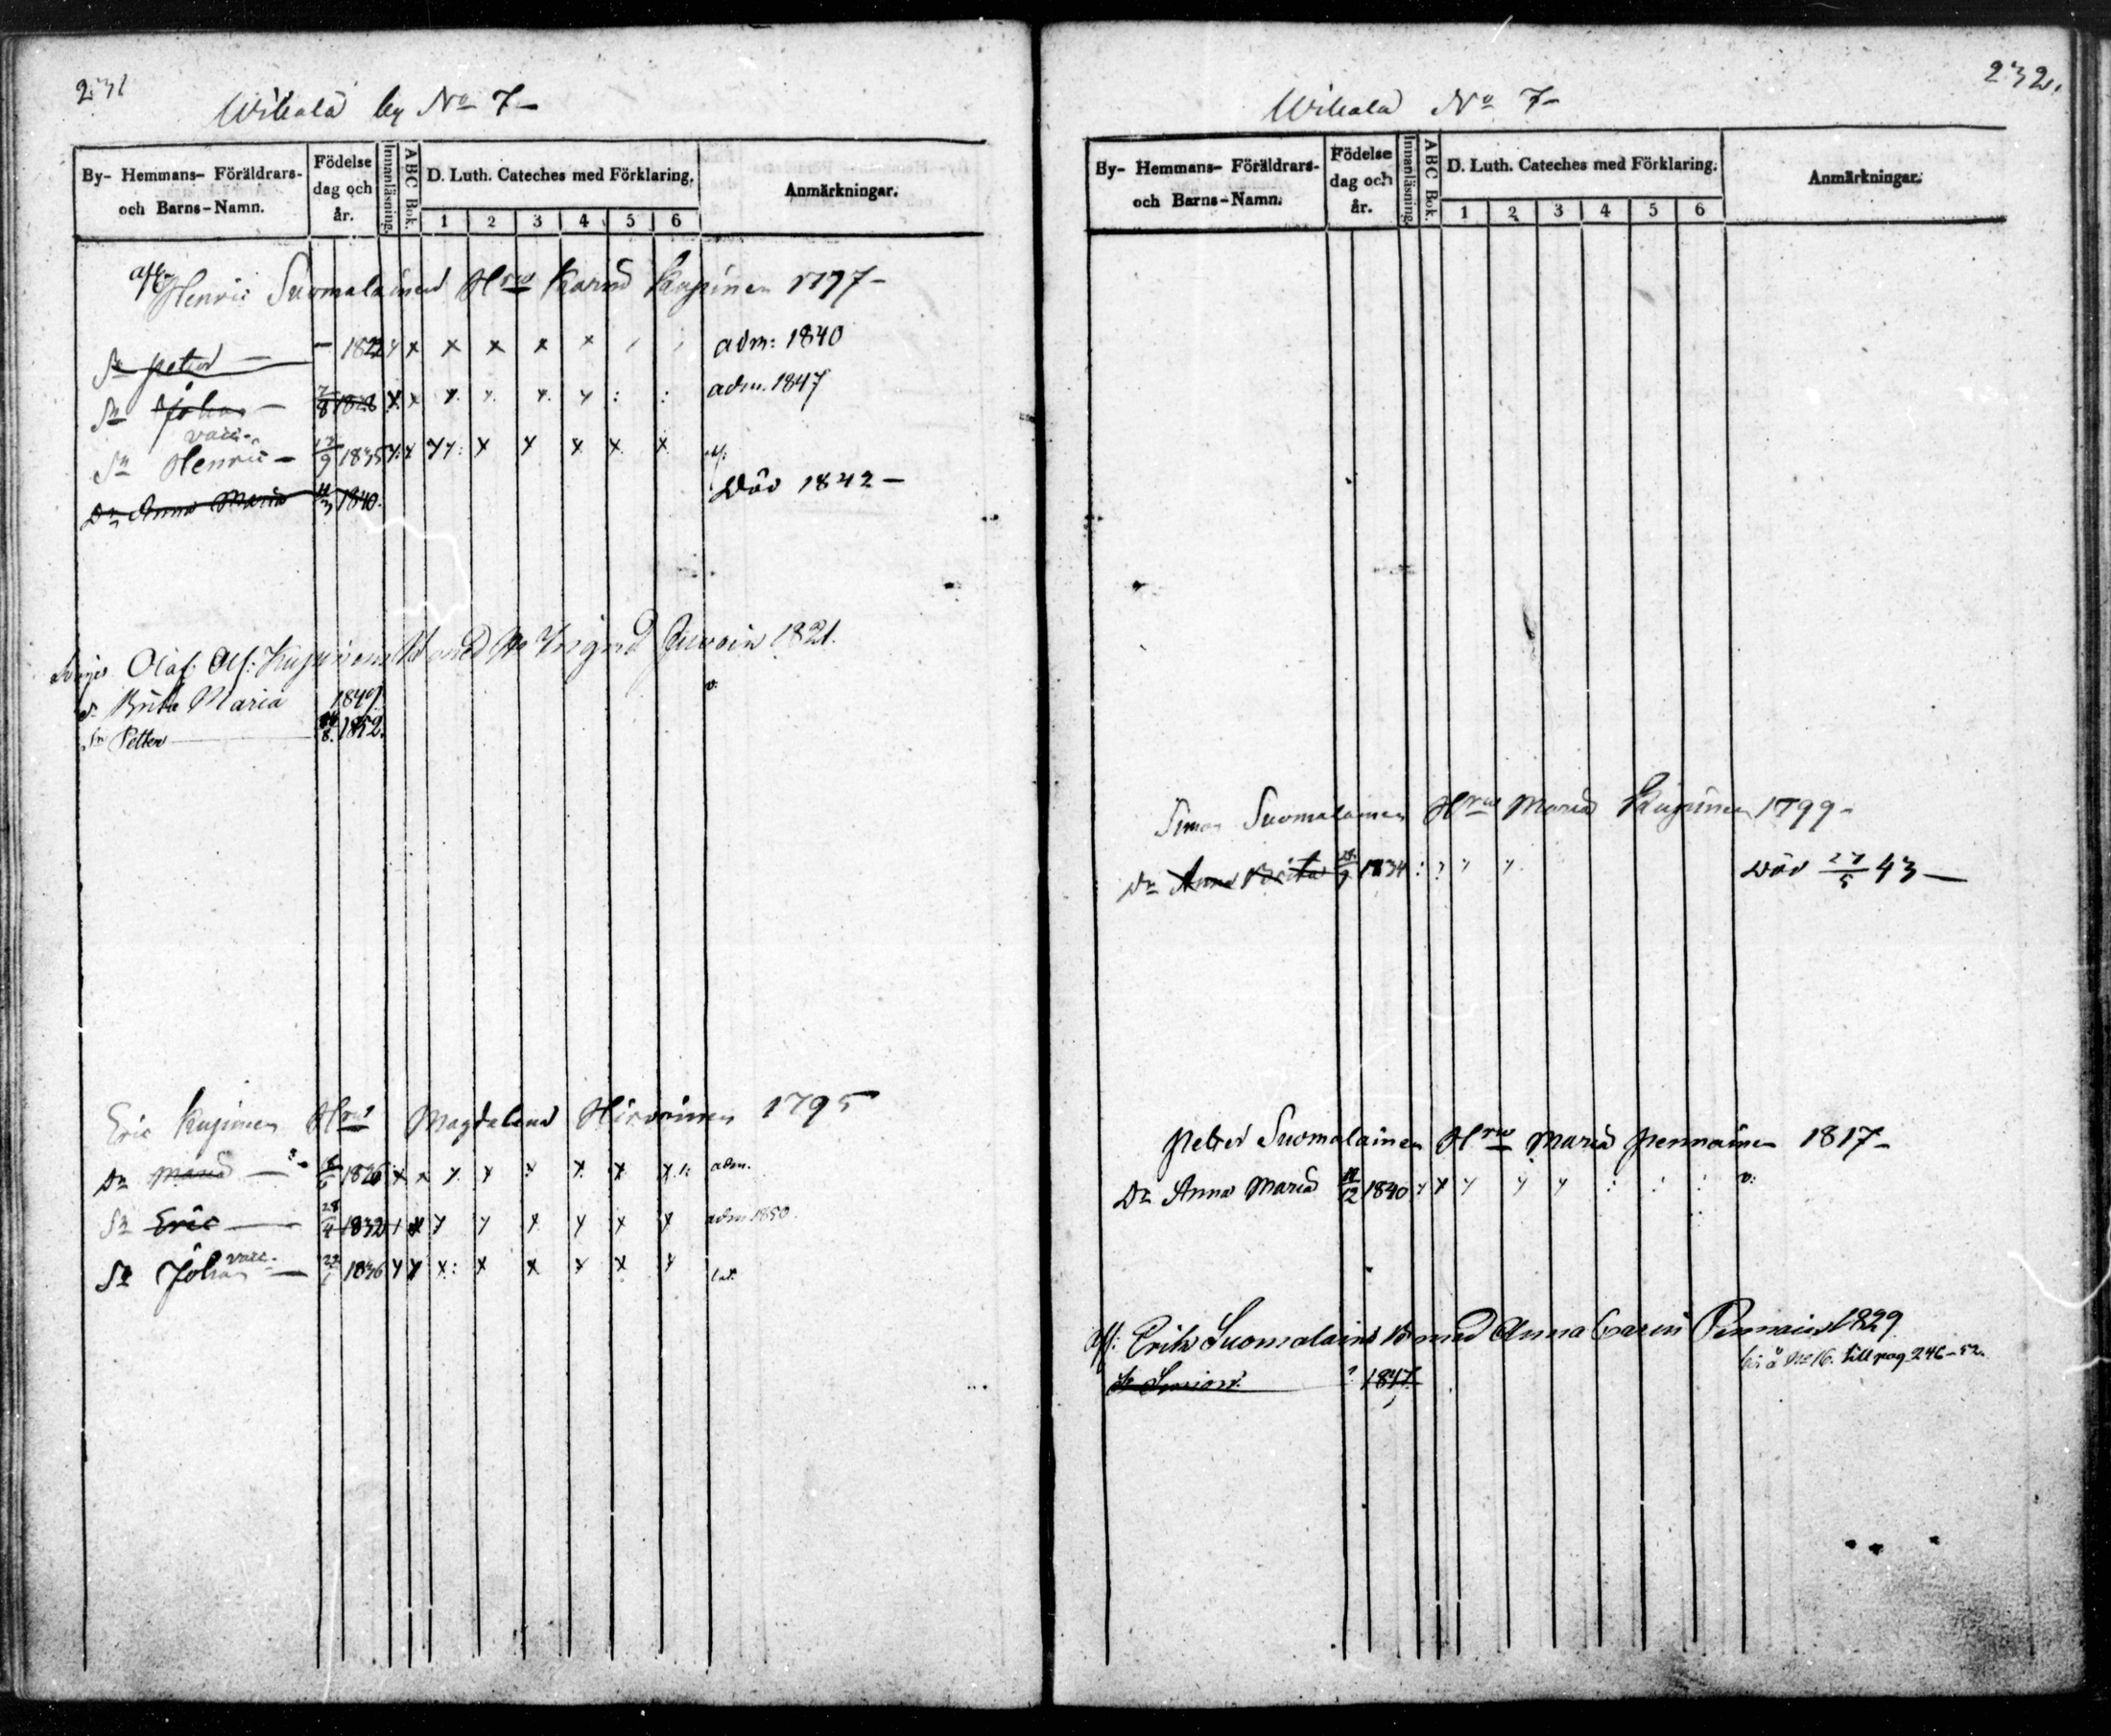 231
Wihala by No 7-
By- Hemmans- Föräldrars- och Barns-Namn.
Födelse dag och år.
Innanläsning.
ABC Bok.
D. Luth. Cateches med Förklaring.
1 2 3 4 5 6
Anmärkningar.
afl. Henric Suomalainen Hru Karin Kupinen 1797-
Sn Petter - - 1822 y x x x x x adm: 1840
Sn Johan - 7/8 1828 x x y. y. y. y : : adm. 1847
vacc.
Sn Henric - 12/9 1835 x x x x x x x
Dr Anna Maria 1840. Död 1842 -
Olof Kupinens 1821.
Dr Brita Maria 1849 v.
Sn Petter 1852.
Eric Kupinen Hru Magdalena Hirvoinen 1795
Dr Maria - 1826 x x y. y y x x x adm.
Sn Eric - 28/4 1832 y y x y x x adm 1850.
vacc.
Sn Johan - 1836 y x x: x x x x y
232.
Wihala No 7-
By- Hemmans- Föräldrars- och Barns-Namn.
Födelse dag och år.
Innanläsning.
ABC Bok.
D. Luth. Cateches med Förklaring.
1 2 3 4 5 6
Anmärkningar.
Simon Suomalainen Hru Maria Kupinen 1799-
Dr Anna Brita 1834 : : y y Död 27/5 43 -
Petter Suomalainen Hru Maria Pennainen 1817-
Dr Anna Maria 1840 y x y y y : : : v:
Erik Suomalain med Anna Carin Pennain 1829
No 16. till pag 246-52.
Sn Simon. ? 1847